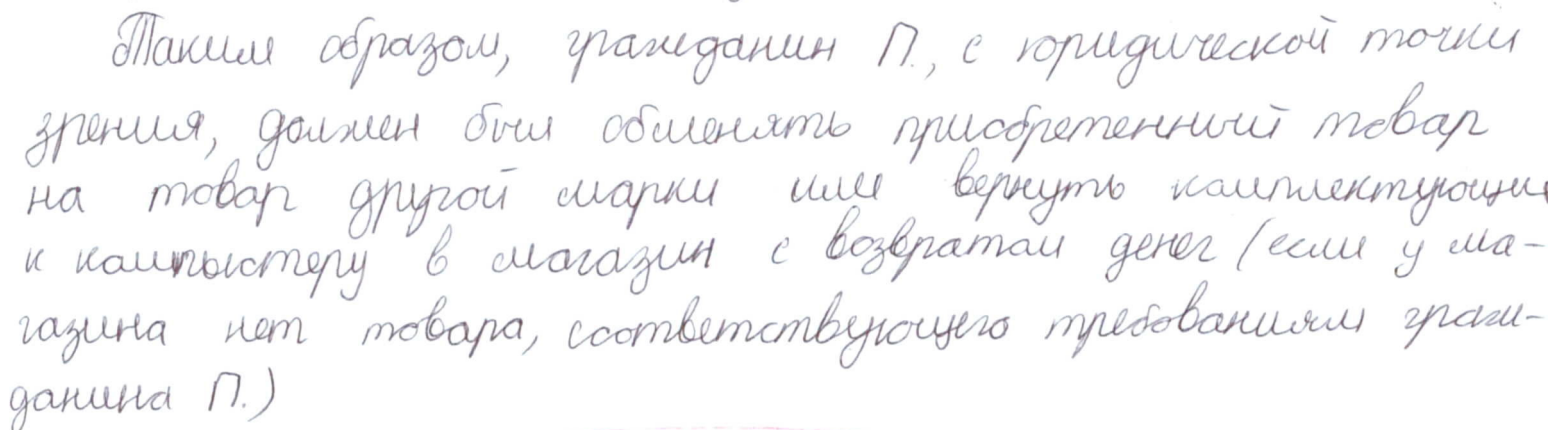 Таким образом, гражданин П., с юридической точки
зрения, должен был обменять приобретенный товар
на товар другой марки или вернуть комплектующие
к компьютеру в магазин с возвратом денег (если у ма-
газина нет товара, соответствующего требованиям граж-
данина П.)